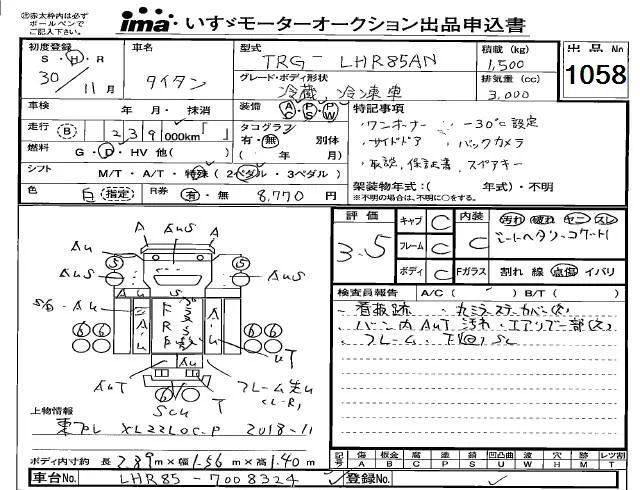 ㊟赤太枠内は必ず
ボールペンで
ご記入下さい。
ima いすゞモーターオークション出品申込書
初度登録 S・H・R 30年 11月
車名 タイタン
型式 TRG- LHR85AN
積載(kg) 1,500
出品No 1058
グレード・ボディ形状 冷蔵,冷凍車
排気量(cc) 3,000
車検 年 月・抹消
装備 AC PS PW
特記事項
・ワンオーナー ・-30℃設定
走行 B 239,000km「 」
タコグラフ 有・無 別体
( 年 月)
・サイドドア ・バックカメラ
燃料 G・D・HV 他( )
・取説,保証書 スペアキー
シフト MT・A/T・特殊(2ペダル・3ペダル)
架装物年式:( 年式)・不明
※不明の場合は、不明に○をする。
色 白(指定)
R券 有・無 8,770円
評価 3.5
キャブ C
フレーム C
ボディ C
内装 C
汚れ 破れ ヤニ スレ
Fガラス 割れ 線 点傷 イバリ
検査員報告 A/C( ) B/T( )
・看板跡
・バン内 AuT 汚れ・エアリブ一部(欠)
・フレーム・下回り SC
A AuS
A
Au
S AuS
AuS
6 6
AuT
SCu
T
フレーム先u
(L-R)
上物情報
東プレ XL22LOC-P 2018-11
ボディ内寸約 長 2.89m×幅 1.56m×高 1.40m
記号 傷A 板金B 腐C 塗P 錆S 凹凸曲U 波W 穴H 跡M レツ割T
車台No. LHR85-7008324
登録No.